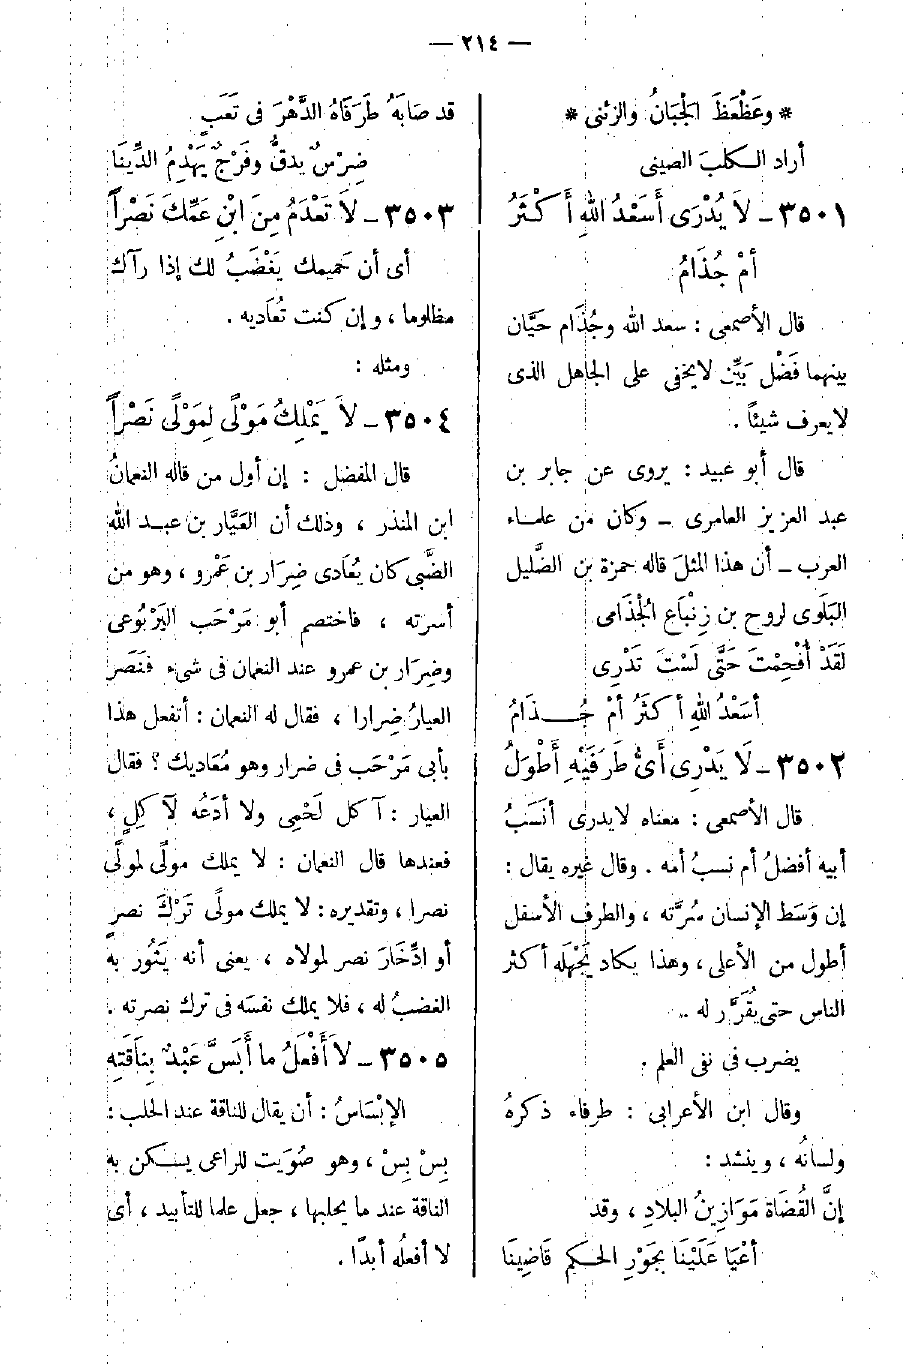 — ٢١٤ —
* وعَظْعَظَ الجَبَانُ والزئنى *
أراد الكلبَ الصينى
٣٥٠١ – لاَ يُدْرَى أَسَعْدُ اللهِ أَكْثَرُ
أمْ جُذَامُ
قال الأصمعى : سعد الله وجُذَام حَيَّان
بينهما فَضْل بَيِّن لا يخفى على الجاهل الذى
لا يعرف شيئاً .
قال أبو عبيد : يروى عن جابر بن
عبد العزيز العامرى – وكان من علماء
العرب – أن هذا المثلَ قاله حمزة بن الضَّليل
البَلَوى لروح بن زِنْبَاع الجُذَامى
لَقَدْ أُفْحِمْتَ حَتَّى لَسْتَ تَدْرِى
أسَعْدُ اللهِ أكثَرُ أمْ جُذَامُ
٣٥٠٢ – لاَ يَدْرِى أىُّ طَرَفَيْهِ أَطْوَلُ
قال الأصمعى : معناه لايدرى أنَسَبُ
أبيه أفضلُ أم نسبُ أمه . وقال غيره يقال :
إن وَسَط الإنسان سُرَّته ، والطرف الأسفل
أطول من الأعلى ، وهذا يكاد يَجْهَله أكثر
الناس حتى يُقَرَّر له ..
يضرب فى نفى العلم .
وقال ابن الأعرابى : طرفاه ذكرهُ
ولسانُه ، وينشد :
إنَّ القُضَاةَ مَوَازِينُ البلادِ ، وقد
أعْيَا عَلَيْنَا بجَوْرِ الحكم قَاضِينَا
قد صَابَهُ طَرَفَاهُ الدَّهْرَ فى تَعَبٍ
ضِرْسٌ يدقُّ وفَرْجٌ يَهْدِمُ الدِّينَا
٣٥٠٣ – لاَ تَعْدَمُ مِنَ ابْنِ عَمِّكَ نَصْراً
أى أن حَمِيمك يَغْضَبُ لك إذا رآك
مظلوما ، وإن كنت تُعَاديه .
ومثله :
٣٥٠٤ – لاَ يَمْلِكُ مَوْلًى لِمَوْلًى نَصْراً
قال المفضل : إن أول من قاله النعمانُ
ابن المنذر ، وذلك أن العَيَّار بن عبد الله
الضَّبى كان يُعَادى ضِرَار بن عَمْرو ، وهو من
أسرته ، فاختصم أبو مَرْحَب اليَرْبُوعى
وضِرَار بن عمرو عند النعمان فى شىء فنَصَر
العيارُ ضِرارا ، فقال له النعمان : أتفعل هذا
بأبى مَرْحَب فى ضرار وهو مُعَاديك ؟ فقال
العيار : آكل لَحْمِى ولا أدَعُه لآكِلٍ ،
فعندها قال النعمان : لا يملك مولًى لمولًى
نصرا ، وتقديره : لا يملك مولًى تَرْكَ نصرٍ
أو ادِّخَارَ نصر لمولاه ، يعنى أنه يَثُور به
الغضبُ له ، فلا يملك نفسَه فى ترك نصرته .
٣٥٠٥ – لاَ أَفْعَلُ ما أَبَسَّ عَبْدٌ بِنَاقَتِهِ
الإبْسَاسُ : أن يقال للناقة عند الحلب :
بِسْ بِسْ ، وهو صُوَيت للراعى يسكن به
الناقة عند ما يحلبها ، جعل علما للتأبيد ، أى
لا أفعلُه أبدًا .